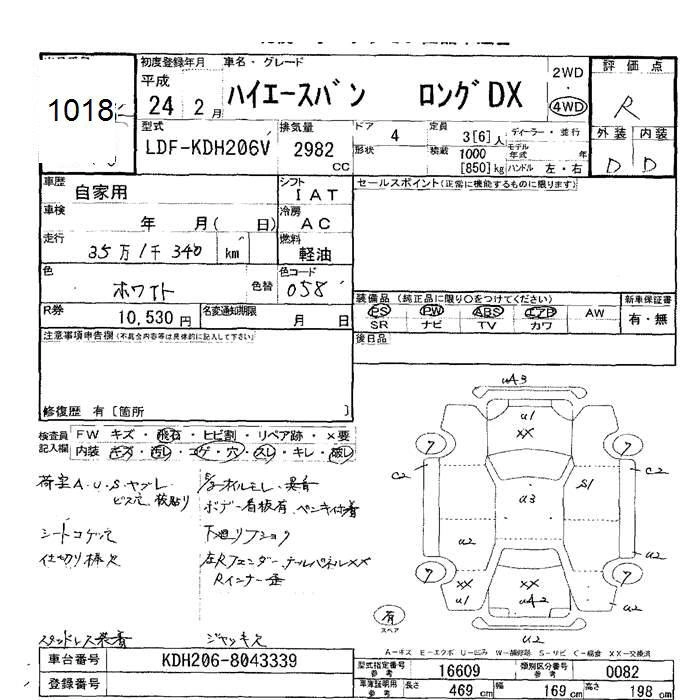 1018
初度登録年月
平成
24 2 月
車名・グレード
ハイエースバン ロングDX
2WD
・
4WD
評価点
R
外装 内装
D D
型式
LDF-KDH206V
排気量
2982 CC
ドア 4
形状
定員 3[6]人
積載 1000 [850]kg
ディーラー・並行
モデル年式 年
ハンドル 左・右
車歴 自家用
シフト IAT
車検 年 月( 日)
冷房 AC
走行 35万1千340 km
燃料 軽油
色 ホワイト 色替
色コード 058
R券 10,530円
名変通知期限 月 日
セールスポイント(正常に機能するものに限ります)
装備品 (純正品に限り○をつけてください)
PS PW ABS エアB AW
SR ナビ TV カワ
新車保証書
有・無
後日品
注意事項申告欄(不具合内容等は具体的に記入して下さい)
修復歴 有[箇所 ]
検査員記入欄
FW キズ・飛石・ヒビ割・リペア跡・×要
内装 キズ・汚レ・コゲ・穴・スレ・キレ・破レ
荷室A.U.S.ヤブレ
ビス穴
シートコゲ穴
仕切り棒欠
ボデー看板有
下廻りフショク
Rインナー
ジャッキ欠
uA3
u1
XX
7
7
C2
C2
u3
S1
u2
u2
7
7
XX
u1
XX
uA2
u2
u2
有
スペア
A-キズ E-エクボ U-凹み W-補修跡 S-サビ C-腐食 XX-交換済
車台番号 KDH206-8043339
登録番号
型式指定番号 参考 16609
類別区分番号 参考 0082
車庫証明用 参考 長さ 469 cm 幅 169 cm 高さ 198 cm